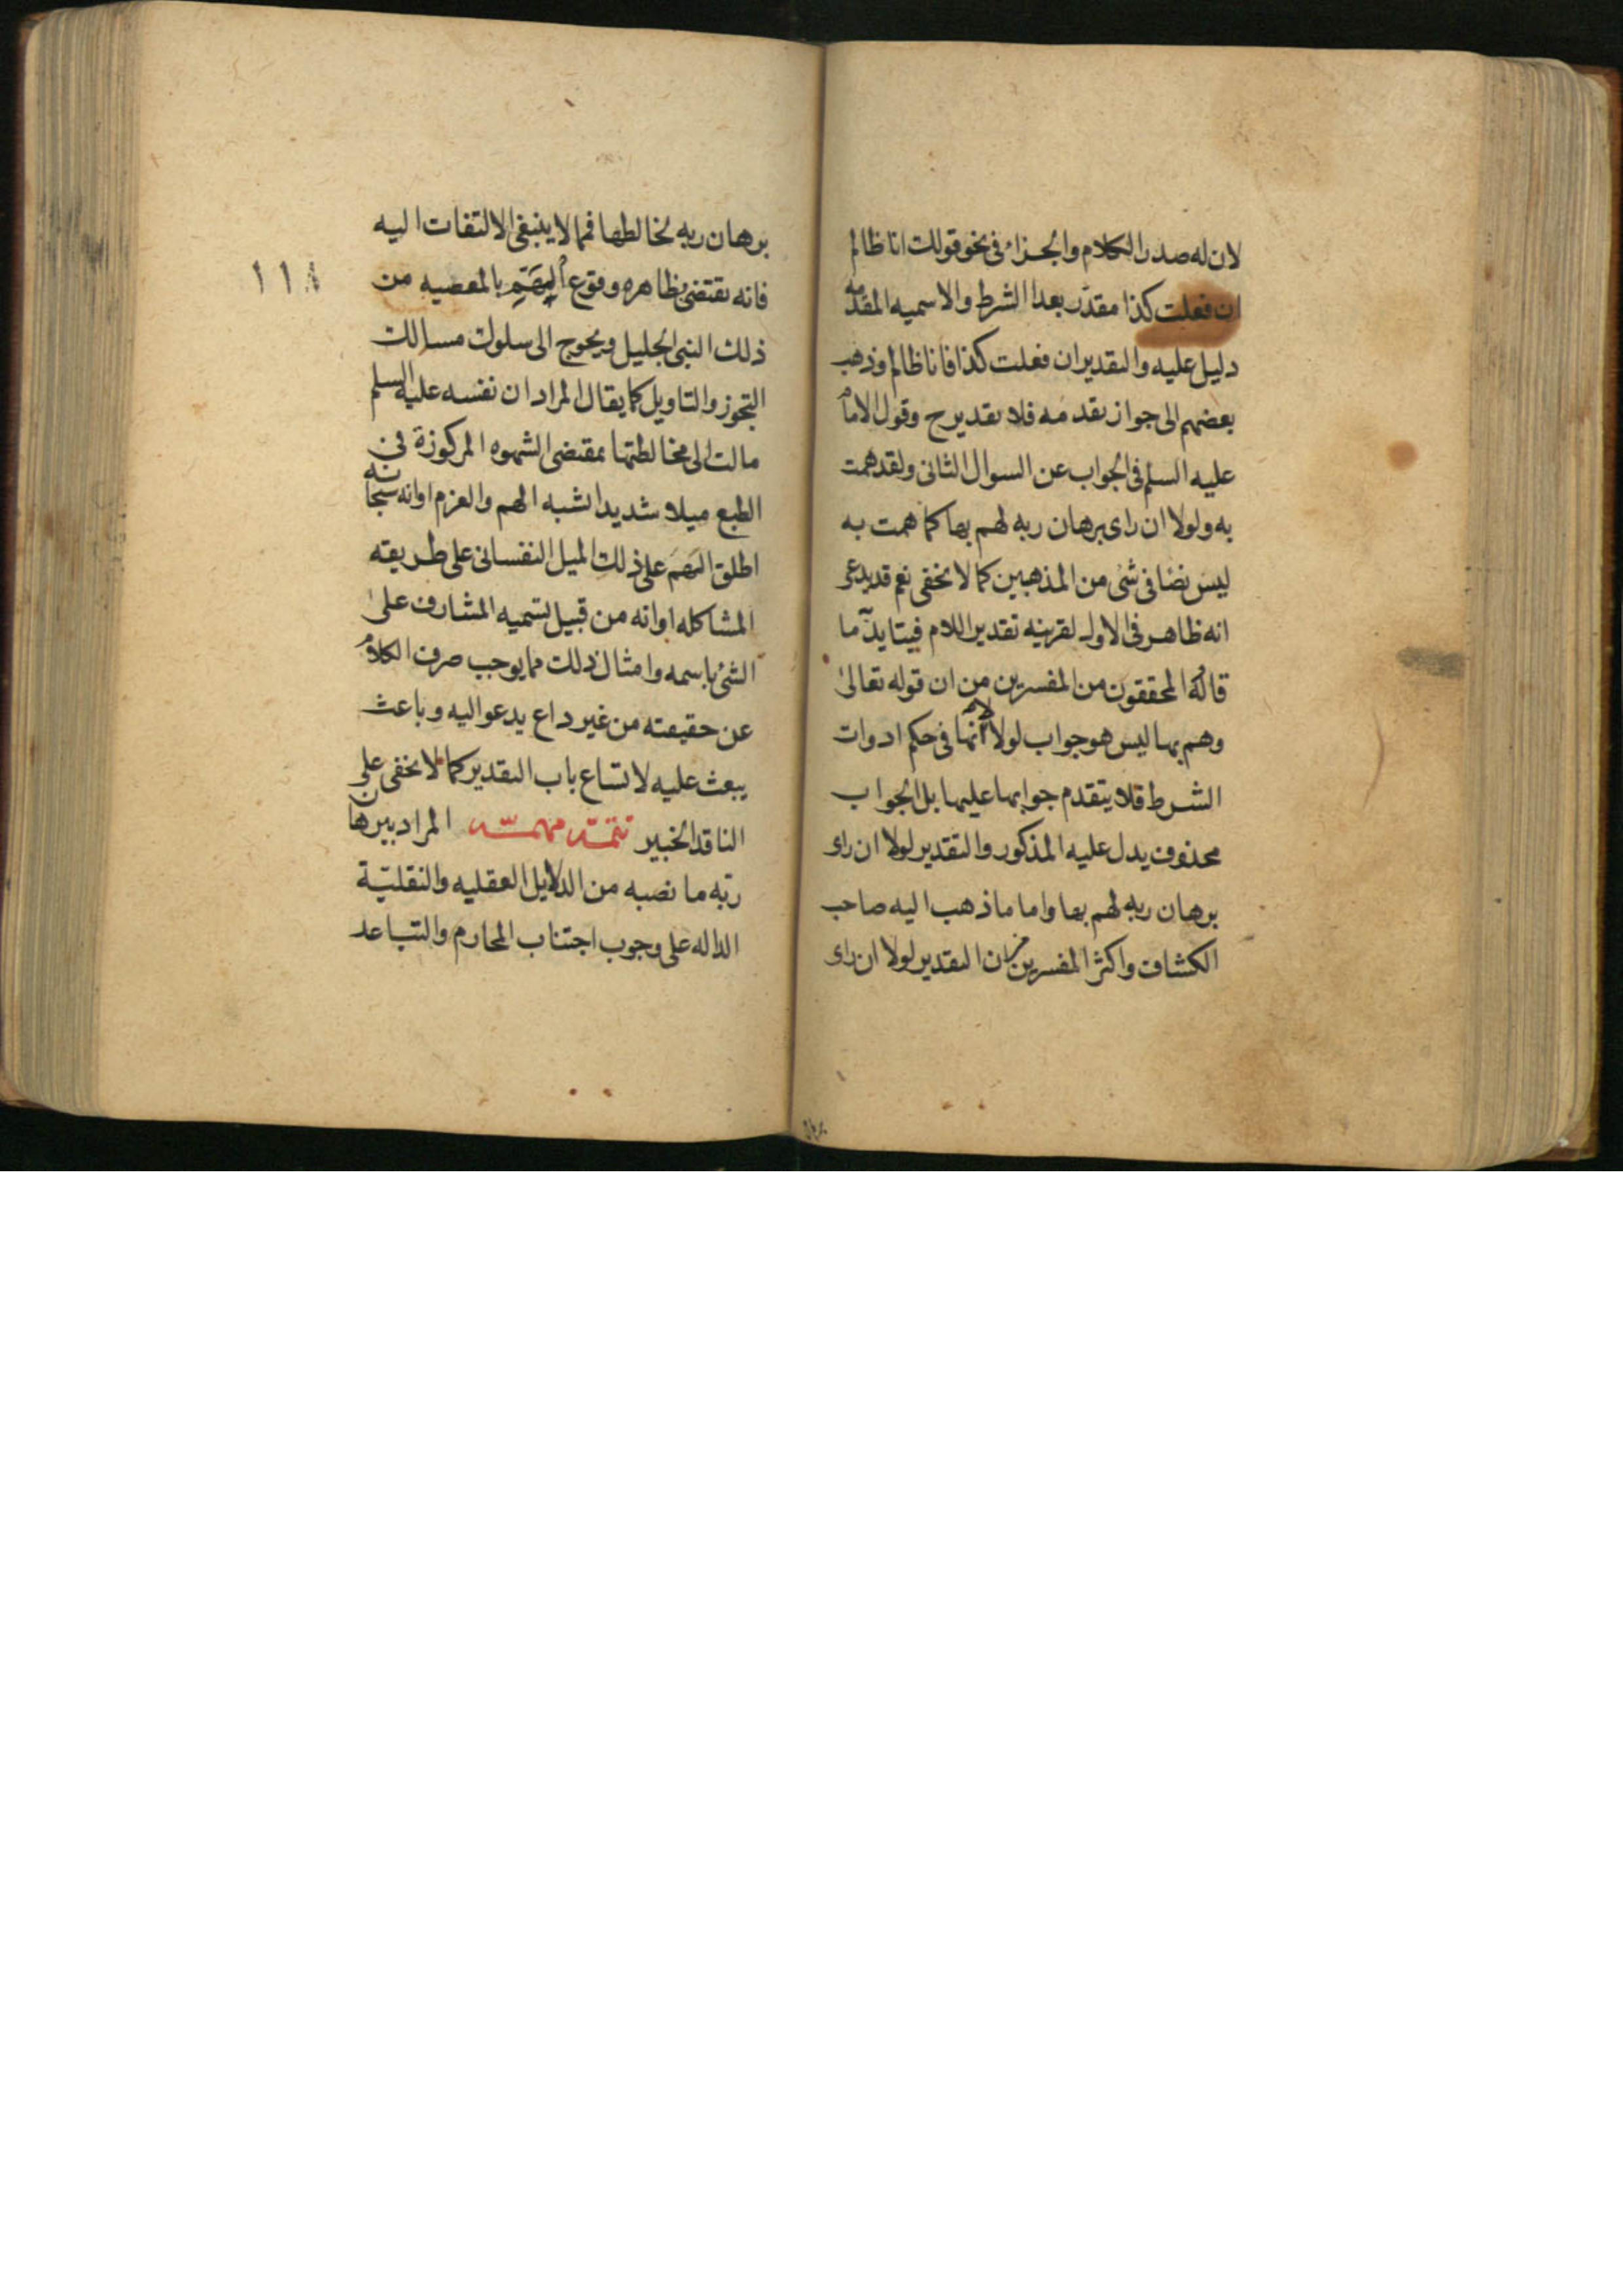 لان له صدر الكلام والجزاء فى نحو قولك انا ظالم
ان فعلت كذا مقدّر بعد الشرط والاسميه المقدمه
دليل عليه والتقدير ان فعلت كذا فانا ظالم وذهب
بعضهم الى جواز تقدمه فلا تقدير ح وقول الامام
عليه السلم فى الجواب عن السوال الثانى ولقد همت
به ولولا ان راى برهان ربه لهم بها كما همت به
ليس نصا فى شئ من المذهبين كما لا يخفى نعم قد يدعى
انه ظاهر فى الاول لقرينه تقدير اللام فيتايد ما
قاله المحققون من المفسرين من ان قوله تعالى
وهم بها ليس هو جواب لولا لانها فى حكم ادوات
الشرط فلا يتقدم جوابها عليها بل الجواب
محذوف يدل عليه المذكور والتقدير لولا ان راى
برهان ربه لهم بها واما ما ذهب اليه صاحب
الكشاف واكثر المفسرين من ان التقدير لولا ان راى
برهان ربه لخالطها فمما لا ينبغى الالتفات اليه
١١٨
فانه يقتضى بظاهره وقوع الهمّ بالمعصيه من
ذلك النبى الجليل ويحوج الى سلوك مسالك
التجوز والتاويل كما يقال المراد ان نفسه عليه السلم
مالت الى مخالطتها بمقتضى الشهوه المركوزة فى
الطبع ميلا شديدا اشبه الهم والعزم او انه سبحانه
اطلق الهمّ على ذلك الميل النفسانى على طريقه
المشاكله او انه من قبيل تسميه المشارف على
الشئ باسمه وامثال ذلك مما يوجب صرف الكلام
عن حقيقته من غير داع يدعو اليه وباعث
يبعث عليه لاتساع باب التقدير كما لا يخفى على
الناقد الخبير تتمّه مهمّه المراد ببرهان
ربّه ما نصبه من الدلايل العقليه والنقليّة
الداله على وجوب اجتناب المحارم والتباعد